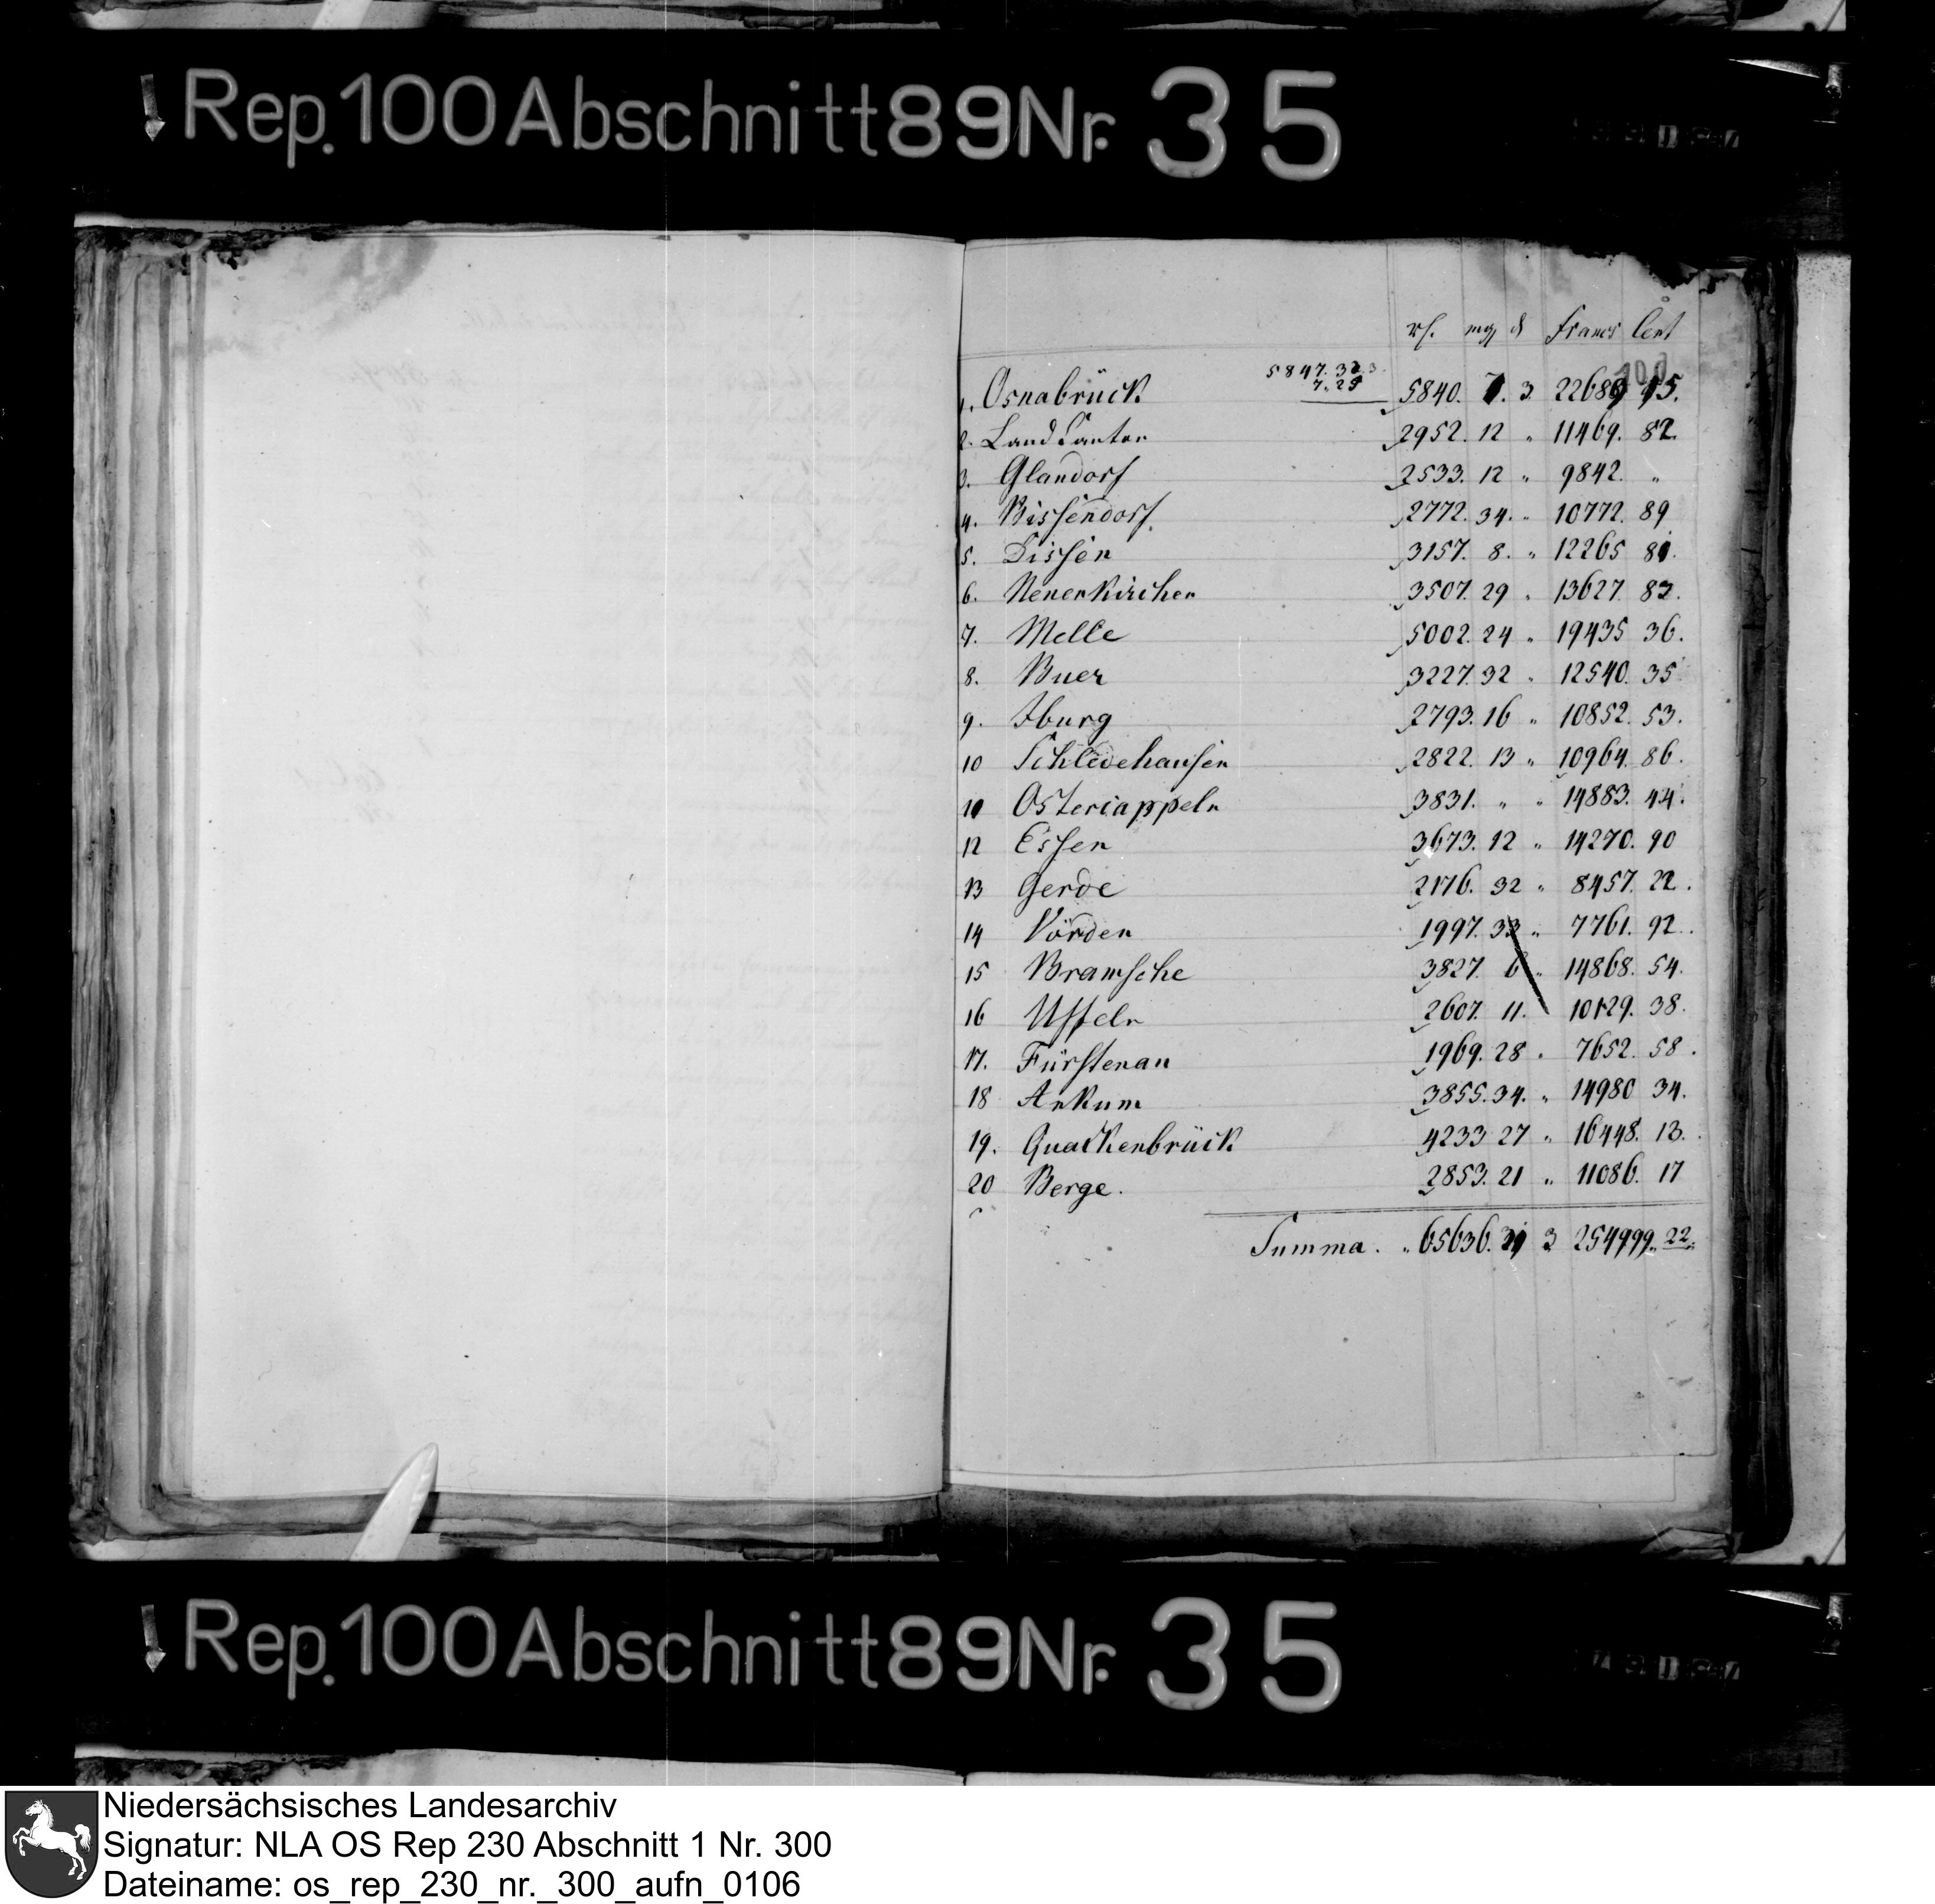 Rep. 100 Abschnitt 89 Nr. 35
rh. mg ₰ Francs Cent
100
5847. 32 3.
7. 25
1. Osnabrück 5840. 7. 3. 22689 15.
2. Land Canton 2952. 12 " 11469. 82.
3. Glandorf 2533. 12 " 9842. "
4. Bissendorf. 2772. 34. " 10772. 89
5. Dissen 3157. 8. " 12265 81.
6. Neuenkirchen 3507. 29 " 13627. 83.
7. Melle 5002. 24 " 19435 36.
8. Buer 3227. 32 " 12540. 35
9. Iburg 2793. 16 " 10852. 53.
10 Schledehausen 2822. 13 " 10964. 86.
11 Ostercappeln 3831. " " 14883. 44.
12 Essen 3673. 12 " 14270. 90
13 Gerde 2176. 32 " 8457. 22.
14 Vörden 1997. 33 " 7761. 92.
15 Bramsche 3827. 6 " 14868. 54.
16 Uffeln 2607. 11. 10129. 38.
17. Fürstenau 1969. 28 " 7652. 58.
18 Ankum 3855. 34. " 14980 34.
19. Quackenbrück 4233 27 " 16448. 13.
20 Berge. 2853. 21 " 11086. 17
Summa. " 65636. 31 3 254999. 22.
Rep. 100 Abschnitt 89 Nr. 35
Niedersächsisches Landesarchiv
Signatur: NLA OS Rep 230 Abschnitt 1 Nr. 300
Dateiname: os_rep_230_nr._300_aufn_0106